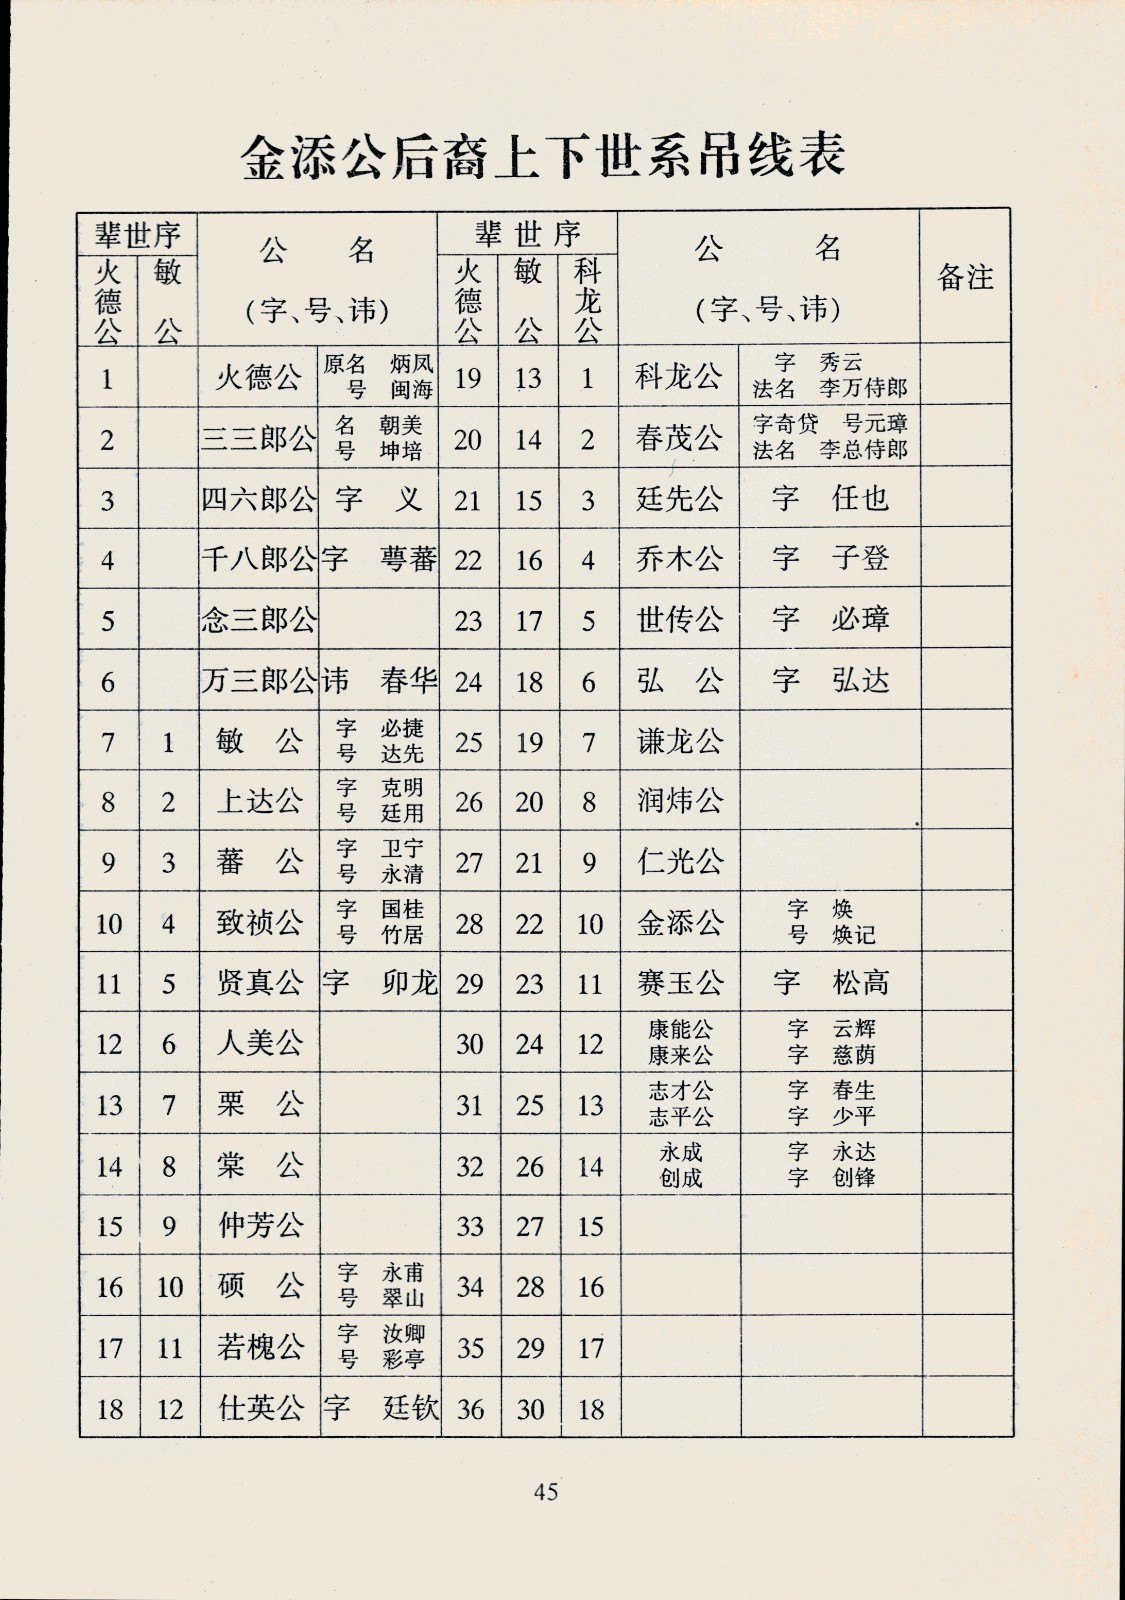 金添公后裔上下世系吊线表
辈世序 公 名 辈世序 公 名 备注
火德公 敏公 (字、号、讳) 火德公 敏公 科龙公 (字、号、讳)
1 火德公 原名 炳凤 19 13 1 科龙公 字 秀云
号 闽海 法名 李万侍郎
2 三三郎公 名 朝美 20 14 2 春茂公 字奇贷 号元璋
号 坤培 法名 李总侍郎
3 四六郎公 字 义 21 15 3 廷先公 字 任也
4 千八郎公 字 萼蕃 22 16 4 乔木公 字 子登
5 念三郎公 23 17 5 世传公 字 必璋
6 万三郎公 讳 春华 24 18 6 弘 公 字 弘达
7 1 敏 公 字 必捷 25 19 7 谦龙公
号 达先
8 2 上达公 字 克明 26 20 8 润炜公
号 廷用
9 3 蕃 公 字 卫宁 27 21 9 仁光公
号 永清
10 4 致祯公 字 国桂 28 22 10 金添公 字 焕
号 竹居 号 焕记
11 5 贤真公 字 卯龙 29 23 11 赛玉公 字 松高
12 6 人美公 30 24 12 康能公 字 云辉
康来公 字 慈荫
13 7 栗 公 31 25 13 志才公 字 春生
志平公 字 少平
14 8 棠 公 32 26 14 永成 字 永达
创成 字 创锋
15 9 仲芳公 33 27 15
16 10 硕 公 字 永甫 34 28 16
号 翠山
17 11 若槐公 字 汝卿 35 29 17
号 彩亭
18 12 仕英公 字 廷钦 36 30 18
45